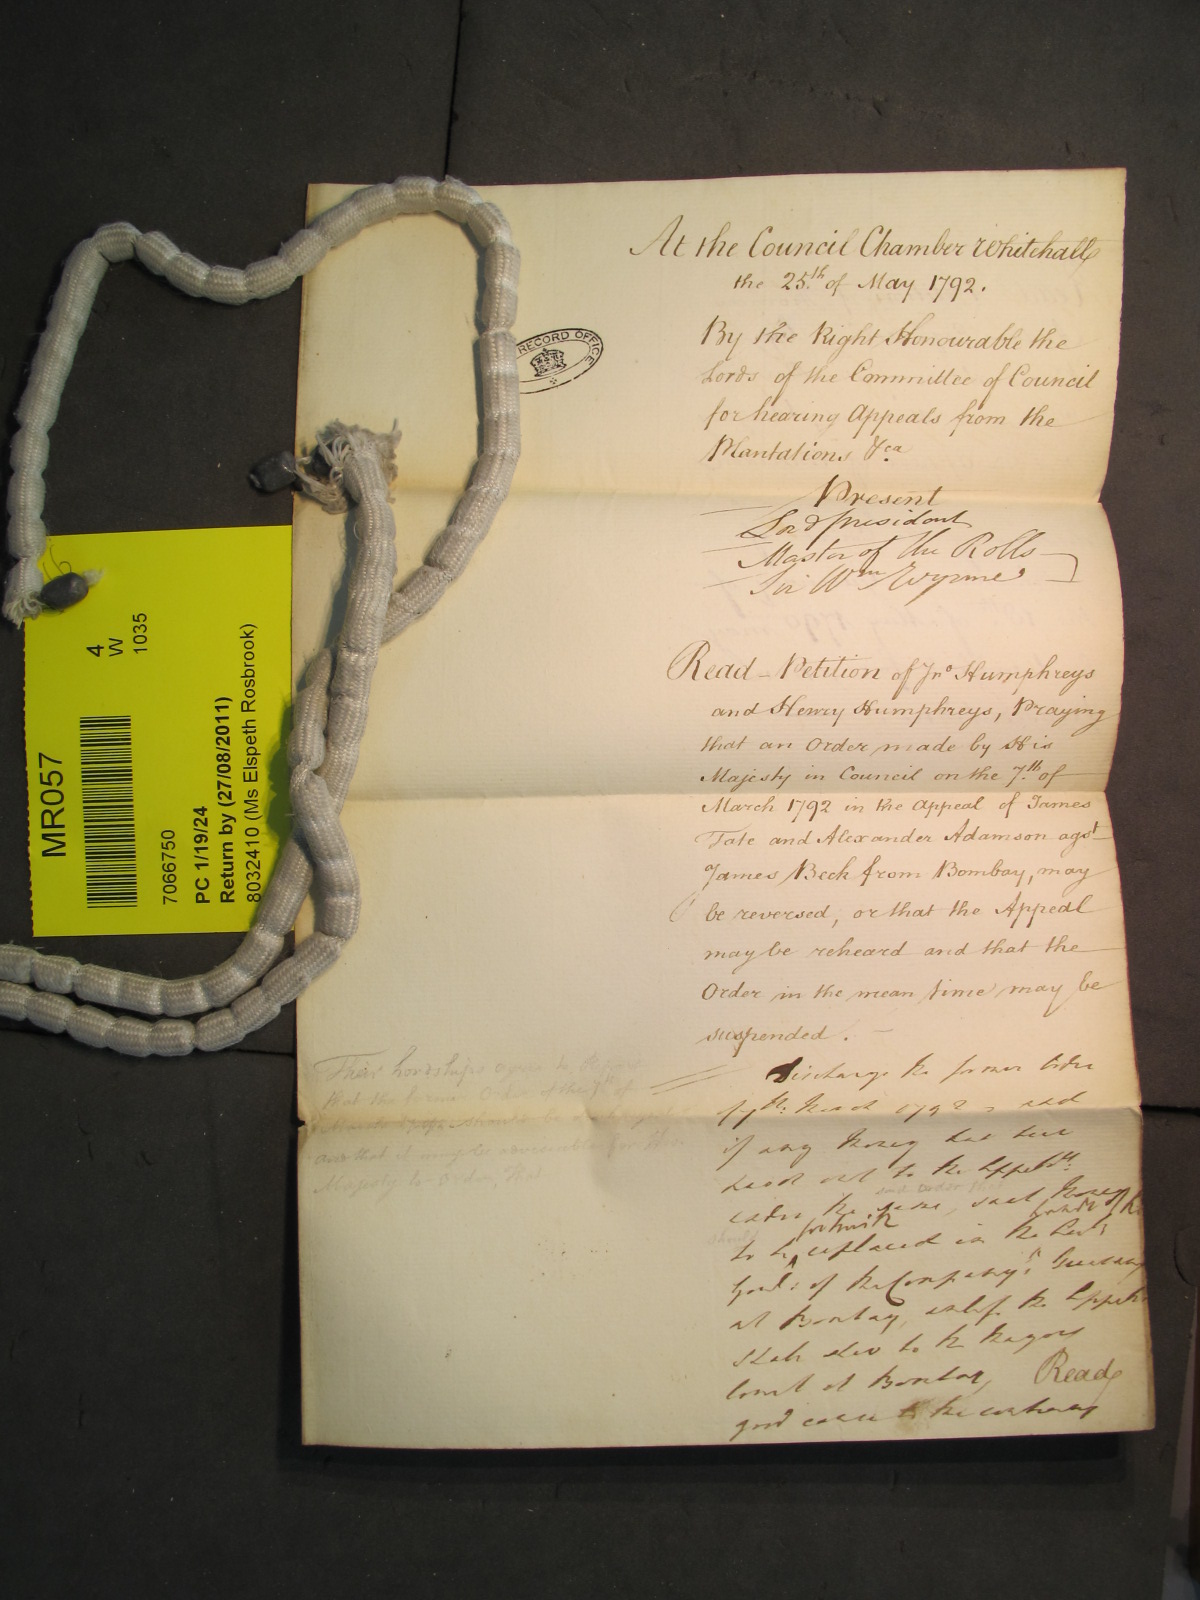 At the Council Chamber Whitehall
the 25th of May 1792.
By the Right Honourable the
Lords of the Committee of Council
for hearing Appeals from the
Plantations &ca
Present
Lord President
Master of the Rolls
Sir Wm Wynne
Read - Petition of Jno Humphreys
and Henry Humphreys, Praying
that an Order made by His
Majesty in Council on the 7th of
March 1792 in the Appeal of James
Tate and Alexander Adamson agst
James Beck from Bombay, may
be reversed, or that the Appeal
may be reheard and that the
Order in the mean time may be
suspended.
Discharge the former Order
of 7th March 1792 and
if any Money has been
paid out to the Appts
under the same, such Money
forthwith
to be replaced in the
of the Company's Treasury
at Bombay, unless the Appts
shall shew to the Mayors
Court at Bombay,
good cause to the contrary
Ready
Their Lordships agree to Report
that the former Order of the 7th of
March 1792 should be discharged
and that it may be adviseable for His
Majesty to order, that
said Order that
should
RECORD OFFICE
MR057
4
W
1035
7066750
PC 1/19/24
Return by (27/08/2011)
8032410 (Ms Elspeth Rosbrook)